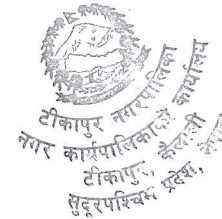 टीकापुर नगरपालिका
नगर कार्यपालिकाको कार्यालय
टीकापुर, कैलाली
सुदूरपश्चिम प्रदेश,